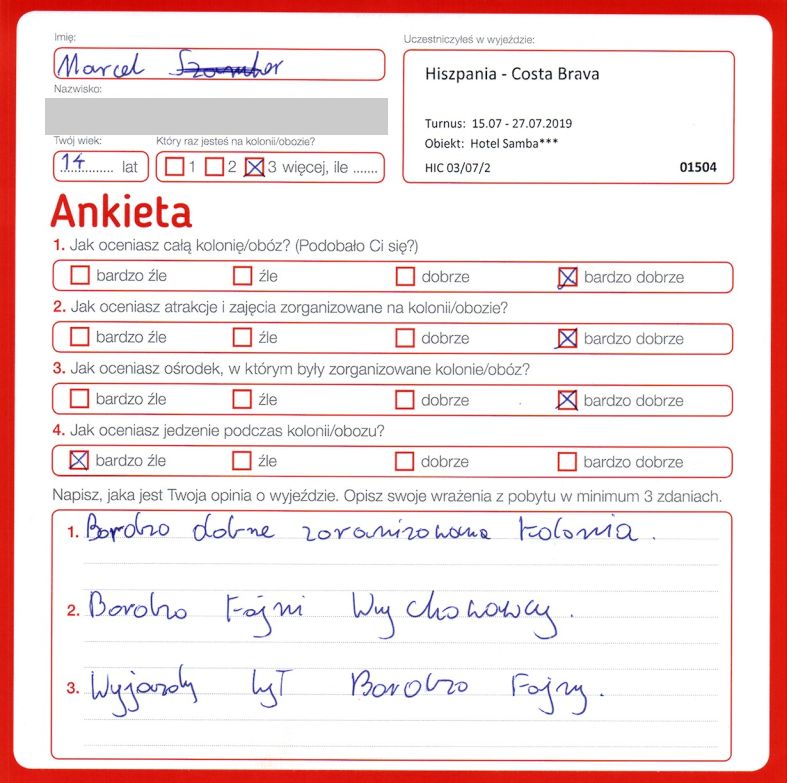 Imię:
Marcel
Nazwisko:
Twój wiek:
14 lat
Który raz jesteś na kolonii/obozie?
1 2 3 więcej, ile .......
Uczestniczyłeś w wyjeździe:
Hiszpania - Costa Brava
Turnus: 15.07 - 27.07.2019
Obiekt: Hotel Samba***
HIC 03/07/2 01504
Ankieta
1. Jak oceniasz całą kolonię/obóz? (Podobało Ci się?)
bardzo źle źle dobrze bardzo dobrze
2. Jak oceniasz atrakcje i zajęcia zorganizowane na kolonii/obozie?
bardzo źle źle dobrze bardzo dobrze
3. Jak oceniasz ośrodek, w którym były zorganizowane kolonie/obóz?
bardzo źle źle dobrze bardzo dobrze
4. Jak oceniasz jedzenie podczas kolonii/obozu?
bardzo źle źle dobrze bardzo dobrze
Napisz, jaka jest Twoja opinia o wyjeździe. Opisz swoje wrażenia z pobytu w minimum 3 zdaniach.
1. Bardzo dobrze zoranizowana kolonia.
2. Bardzo Fajni Wychowawcy.
3. Wyjazdy był Bardzo Fajny.